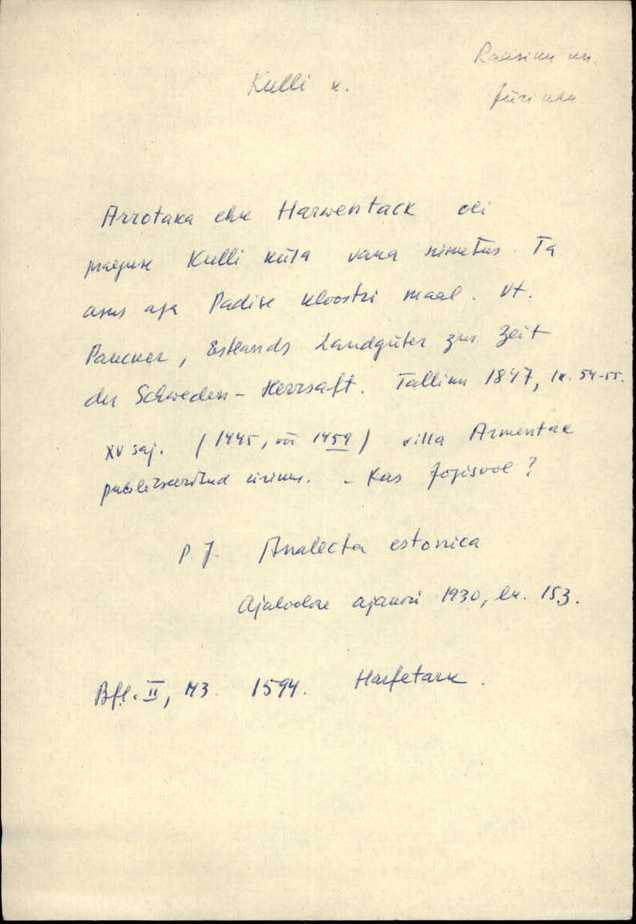 Raasiku kn
Kulli k.
Jüri khk
Arrotaka ehk Harwentack oli
praeguse Kulli küla vana nimetus. Ta
asus aga Padise kloostri maal. Vt.
Paucker, Estlands Landgüter zur Zeit
der Schweden-Herrsaft. Tallinn 1847, lk. 54-55.
XV saj. (1445, või 1459) villa Armentae
publitseeritud
P. J. Analecta estonica
Ajaloolise ajakiri 1930, lk. 153.
Bfl. II, 43. 1594. Harfetack.